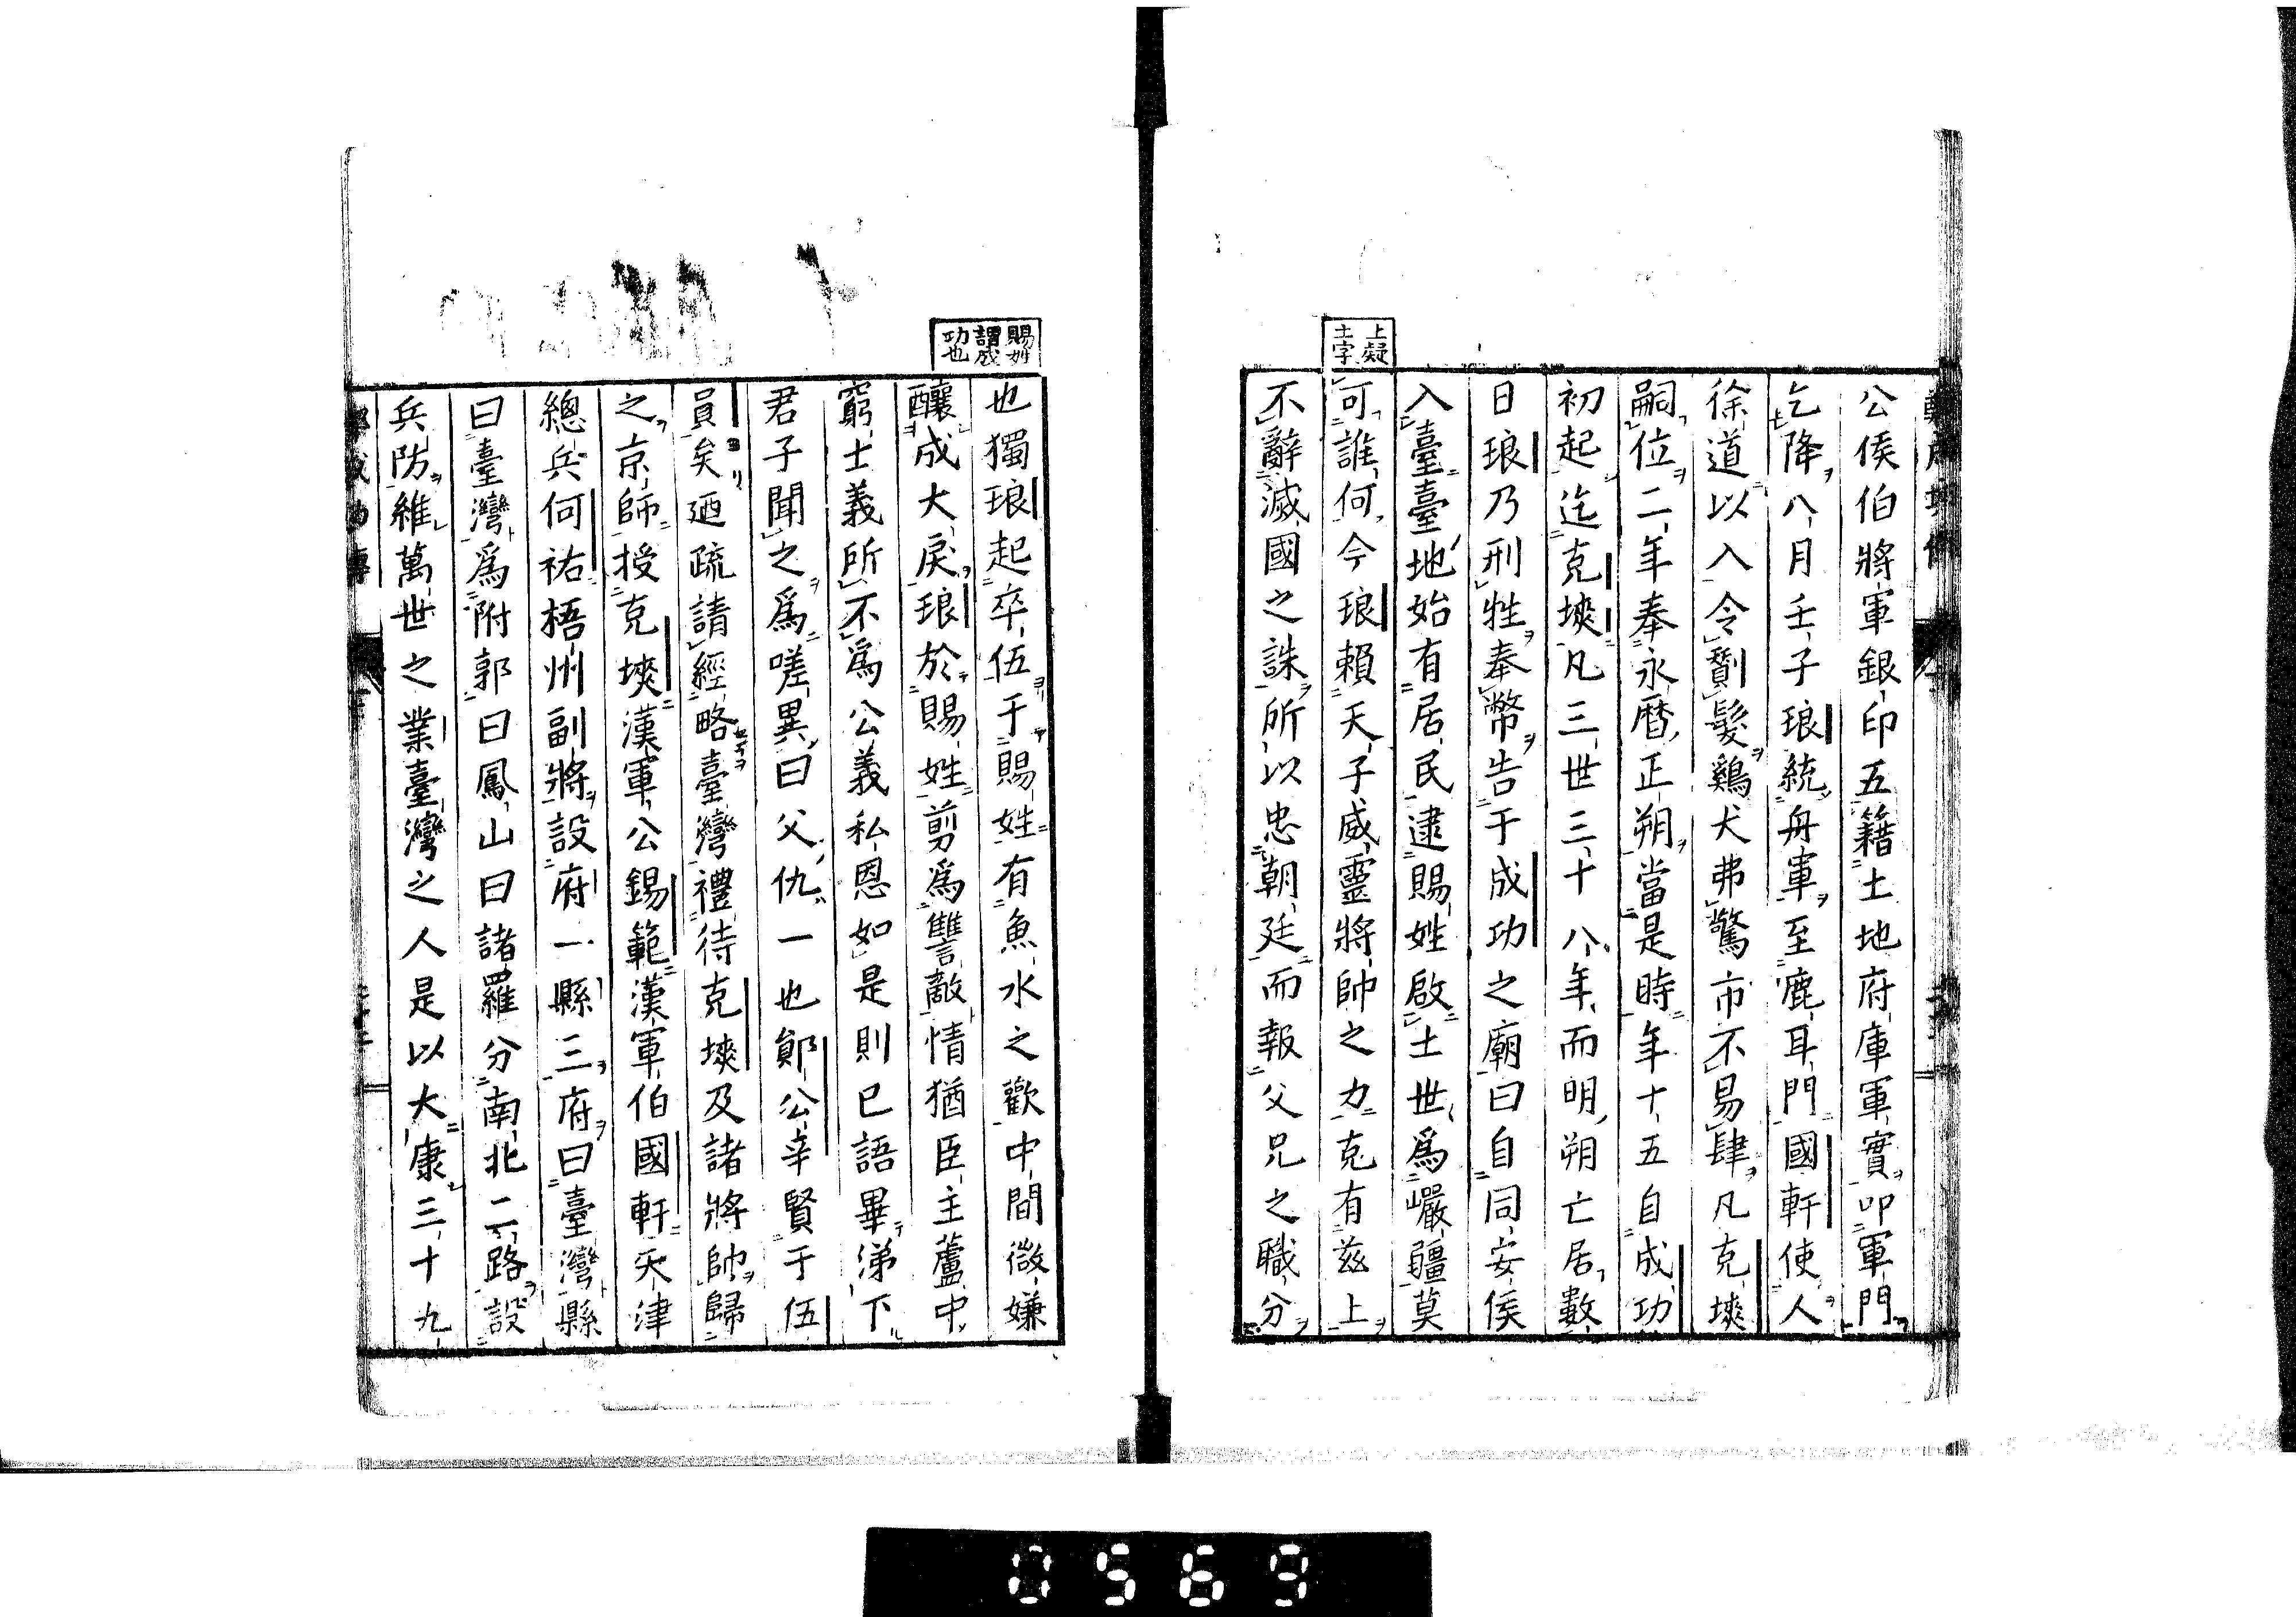 公侯伯將軍銀印五籍土地府庫軍實叩軍門
乞降八月壬子琅統舟車至鹿耳門國軒使人
徐道以入令剃髮鷄犬弗驚市不易肆凡克塽
嗣位二年奉永曆正朔當是時年十五自成功
初起迄克塽凡三世三十八年而明朔亡居數
日琅乃刑牲奉幣告于成功之廟曰自同安侯
入臺臺地始有居民逮賜姓啟土世爲巖疆莫
上疑
土字
可誰何今琅賴天子威靈將帥之力克有茲上
不辭滅國之誅所以忠朝廷而報父兄之職分
賜姓
謂成
功也
也獨琅起卒伍于賜姓有魚水之歡中間微嫌
釀成大戾琅於賜姓剪爲讐敵情猶臣主蘆中
窮士義所不爲公義私恩如是則已語畢涕下
君子聞之爲嗟異曰父仇一也鄖公辛賢于伍
員矣廼疏請經略臺灣禮待克塽及諸將帥歸
之京師授克塽漢軍公錫範漢軍伯國軒天津
總兵何祐梧州副將設府一縣三府曰臺灣縣
曰臺灣爲附郭曰鳳山曰諸羅分南北二路設
兵防維萬世之業臺灣之人是以大康三十九
0569